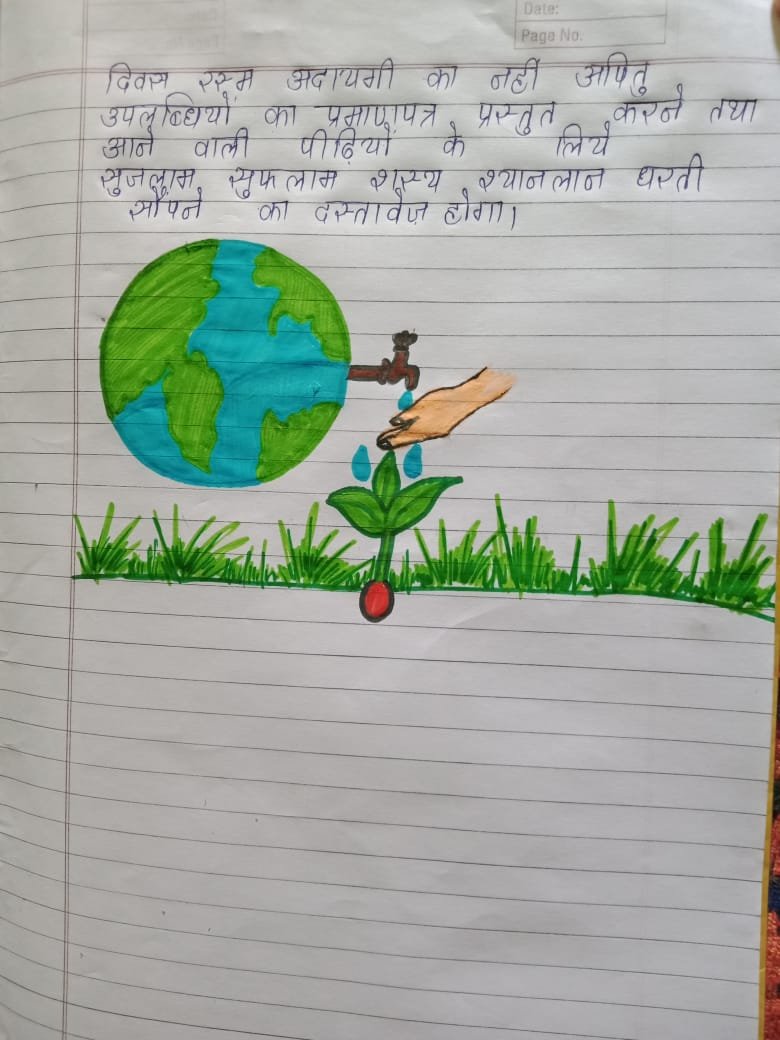 Date:
Page No.
दिवस रस्म अदायगी का नहीं अपितु
उपलब्धियों का प्रमाणपत्र प्रस्तुत करने तथा
आने वाली पीढ़ियों के लिये
सुजलाम सुफलाम शस्य श्यानलान धरती
सौंपने का दस्तावेज़ होगा।